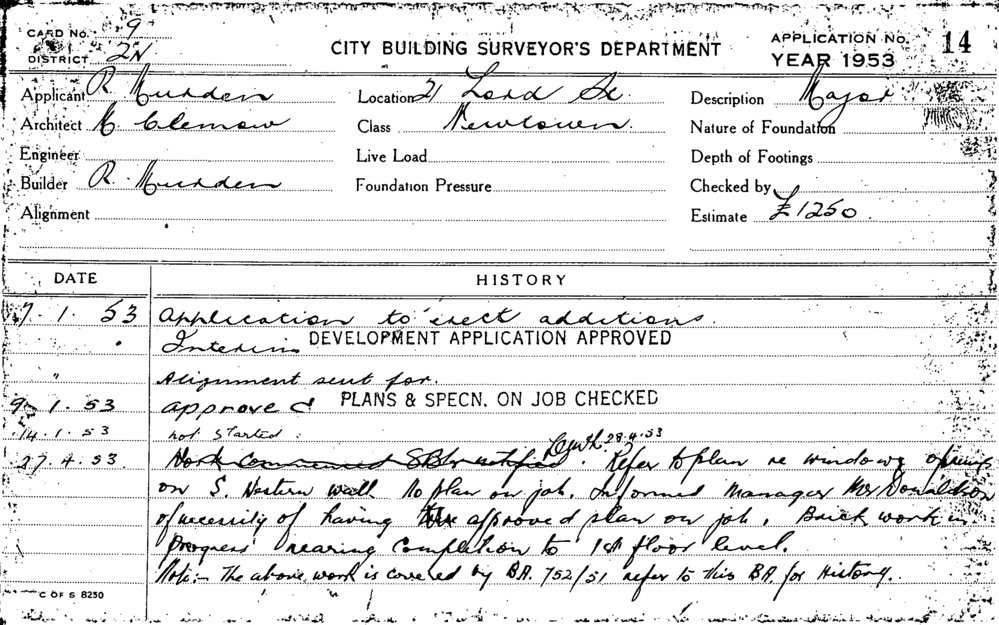 CARD No. 9
DISTRICT 2N
CITY BUILDING SURVEYOR'S DEPARTMENT
APPLICATION No. 14
YEAR 1953
Applicant R. Murden
Location 21 Lord St.
Description Major
Architect C. Clemow
Class Newtown.
Nature of Foundation
Engineer
Live Load
Depth of Footings
Builder R. Murden
Foundation Pressure
Checked by
Alignment
Estimate £1250.
DATE HISTORY
7.1.53 Application to erect additions.
" Interim DEVELOPMENT APPLICATION APPROVED
" Alignment sent for.
9.1.53 approved PLANS & SPECN. ON JOB CHECKED
14.1.53 not started:
28.4.53
27.4.53. Work Commenced notified. Refer to plan re windows opening
on S. Western wall No plan on job. Informed Manager Mr Donaldson
of necessity of having approved plan on job. Brick work in
progress nearing completion to 1st floor level.
Note:- The above work is covered by BA. 752/51 refer to this BA. for History.
C OF S 8250